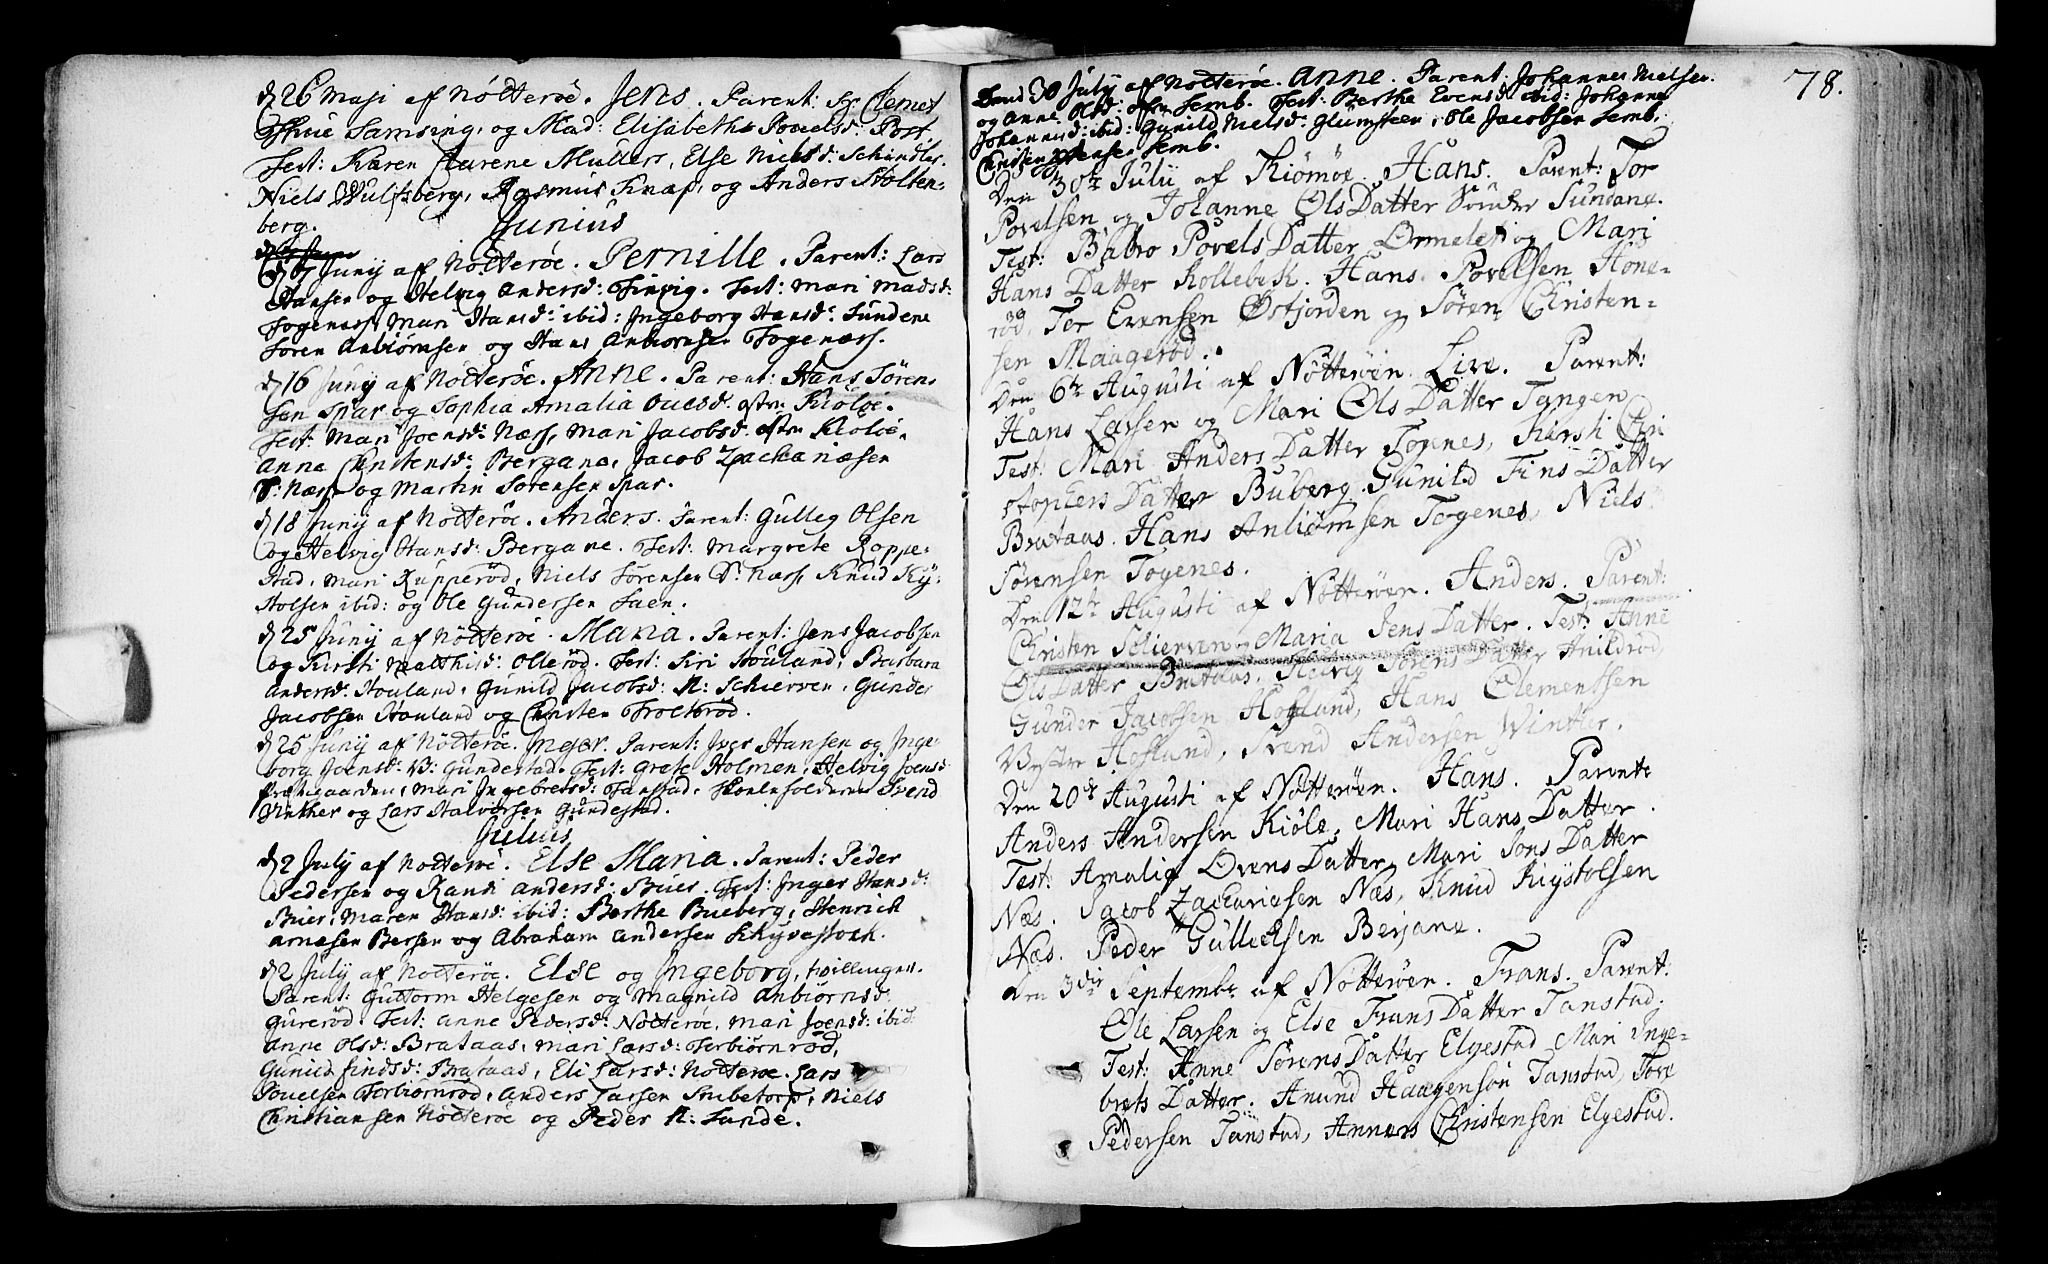 d 26 Maji af Nötteröe. Jens. Parent: Sr. Clemet
Thue Samsing, og Mad: Elisabeth Povelsd: Post
Test: Karen Mullers, Else Nielsd: Schindler
Niels Wulfsberg, Rasmus Knap, og Anders Stolten-
berg.
Junius
d 7 Junij af Nötteröe. Pernille. Parent: Lars
Hansen og Helvig Andersd: Finvig. Test: Mari Madsd:
Togenæss, Mari Hansd: ibid: Ingeborg Hansd: Sundene
Sören Anbiörnsen og Hans Anbiörnsen Togenæss.
d 16 Junij af Nötteröe. Anne. Parent: Hans Sören-
sen Spar og Sophia Amalia Ouesd. Kiölöe.
Test: Mari Joensd: Næss, Mari Jacobsd. Kiölöe,
Anna Christensd: Bergane, Jacob Zachariæsen
S: Næss og Martin Sörensen Spar.
d 18 Junij af Nötteröe. Anders. Parent: Gulleg Olsen
og Helvig Hansd: Bergane. Test: Margrete Roppe-
stad, Mari Rupperöd, Niels Sörensen S: Næss, Knud Ky-
stolsen ibid: og Ole Gundersen Saen.
d 25 Junij af Nötteröe. Maria. Parent: Jens Jacobsen
og Kirsti Matthisd: Olleröd. Test: Siri Houland, Barbara
Andersd: Houland, Gunild Jacobsd: N: Schierven, Gunder
Jacobsen Houland og Christen Trolleröd.
d 25 Junij af Nötteröe. Inger. Parent: Iver Hansen og Inge-
borg Joensd: V: Gundestad. Test: Grete Holmen, Helvig Joensd
Præstegaarden, Mari Ingebretsd: Tanstad, Skoleholderen Svend
Vinther og Lars Halvorsen Gundestad.
Julius
d 2 July af Nötteröe. Else Maria. Parent: Peder
Pedersen og Randi Andersd: Buer. Test: Inger Hansd:
Buer, Maren Hansd: ibid: Berthe Bueberg, Henrich
Arnesen Bersen og Abraham Andersen
d 2 July af Nötteröe. Else og Ingeborg, tvillinger.
Parent: Guttorm Helgesen og Magnild Anbiörnsd:
Gureröd. Test: Anne Pedersd: Nötteröe, Mari Joensd: ibid:
Anne Olsd: Brataas, Mari Larsd: Torbiörnröd,
Gunild Findsd: Brataas, Eli Larsd: Nötteröe. Lars
Povelsen Torbiörnröd, Anders Larsen Smbetorp, Niels
Christiansen Nötteröe og Peder N: Sande.
78.
Dend 30 July af Nötteröe. Anne. Parent: Johannes Nielsen
og Anne Olsd: Semb. Test: Berthe Evensd: ibid: Johanne
Johannisd: ibid: Gunild Nielsd: Glumsteen, Ole Jacobsen Semb,
Christen Jensen Semb.
Den 30te Julii af Tiömöe. Hans. Parent: Tor
Povelsen og Johanne OlsDatter Sönder Sundane.
Test: Babro PovelsDatter Ormelet og Mari
Hans Datter Kollebek. Hans Povelsen Hone-
röd, Tor Evensen Østjorden og Sören Christen-
sen Maageröd.
Den 6te Augusti af Nötteröen. Live. Parent:
Hans Larsen og Mari OlsDatter Tangen
Test: Mari Anders Datter Togenes, Kirsti Chri
stophersDatter Buberg. Gunild FinsDatter
Brataas. Hans Anbiörnsen Togenes, Niels
Sörensen Togenes.
Den 12te Augusti af Nötteröen. Anders. Parent:
Christen Schierven Maria JensDatter. Test: Anne
OlsDatter Brataas, Helvig SörensDatter Huildröd,
Gunder Jacobsen Hoglund, Hans Clementsen
Vestre Hoglund, Svend Andersen Winter.
Den 20de Augusti af Nötteröen. Hans. Parent:
Anders Andersen Kiöle, Mari HansDatter.
Test: Amalia OvensDatter, Mari JonsDatter
Næs. Jacob Zachariasen Næs, Knud Kiystolsen
Næs. Peder Gullichsen Berjane.
Den 3die Septembr. af Nötteröen. Frans. Parent:
Ole Larsen og Else FransDatter Tanstad.
Test: Anne SörensDatter Elgestad Mari Inge-
brets Datter. Amund Haagensön Tanstad, Tore
Pedersen Tanstad, Anners Christensen Elgestad.